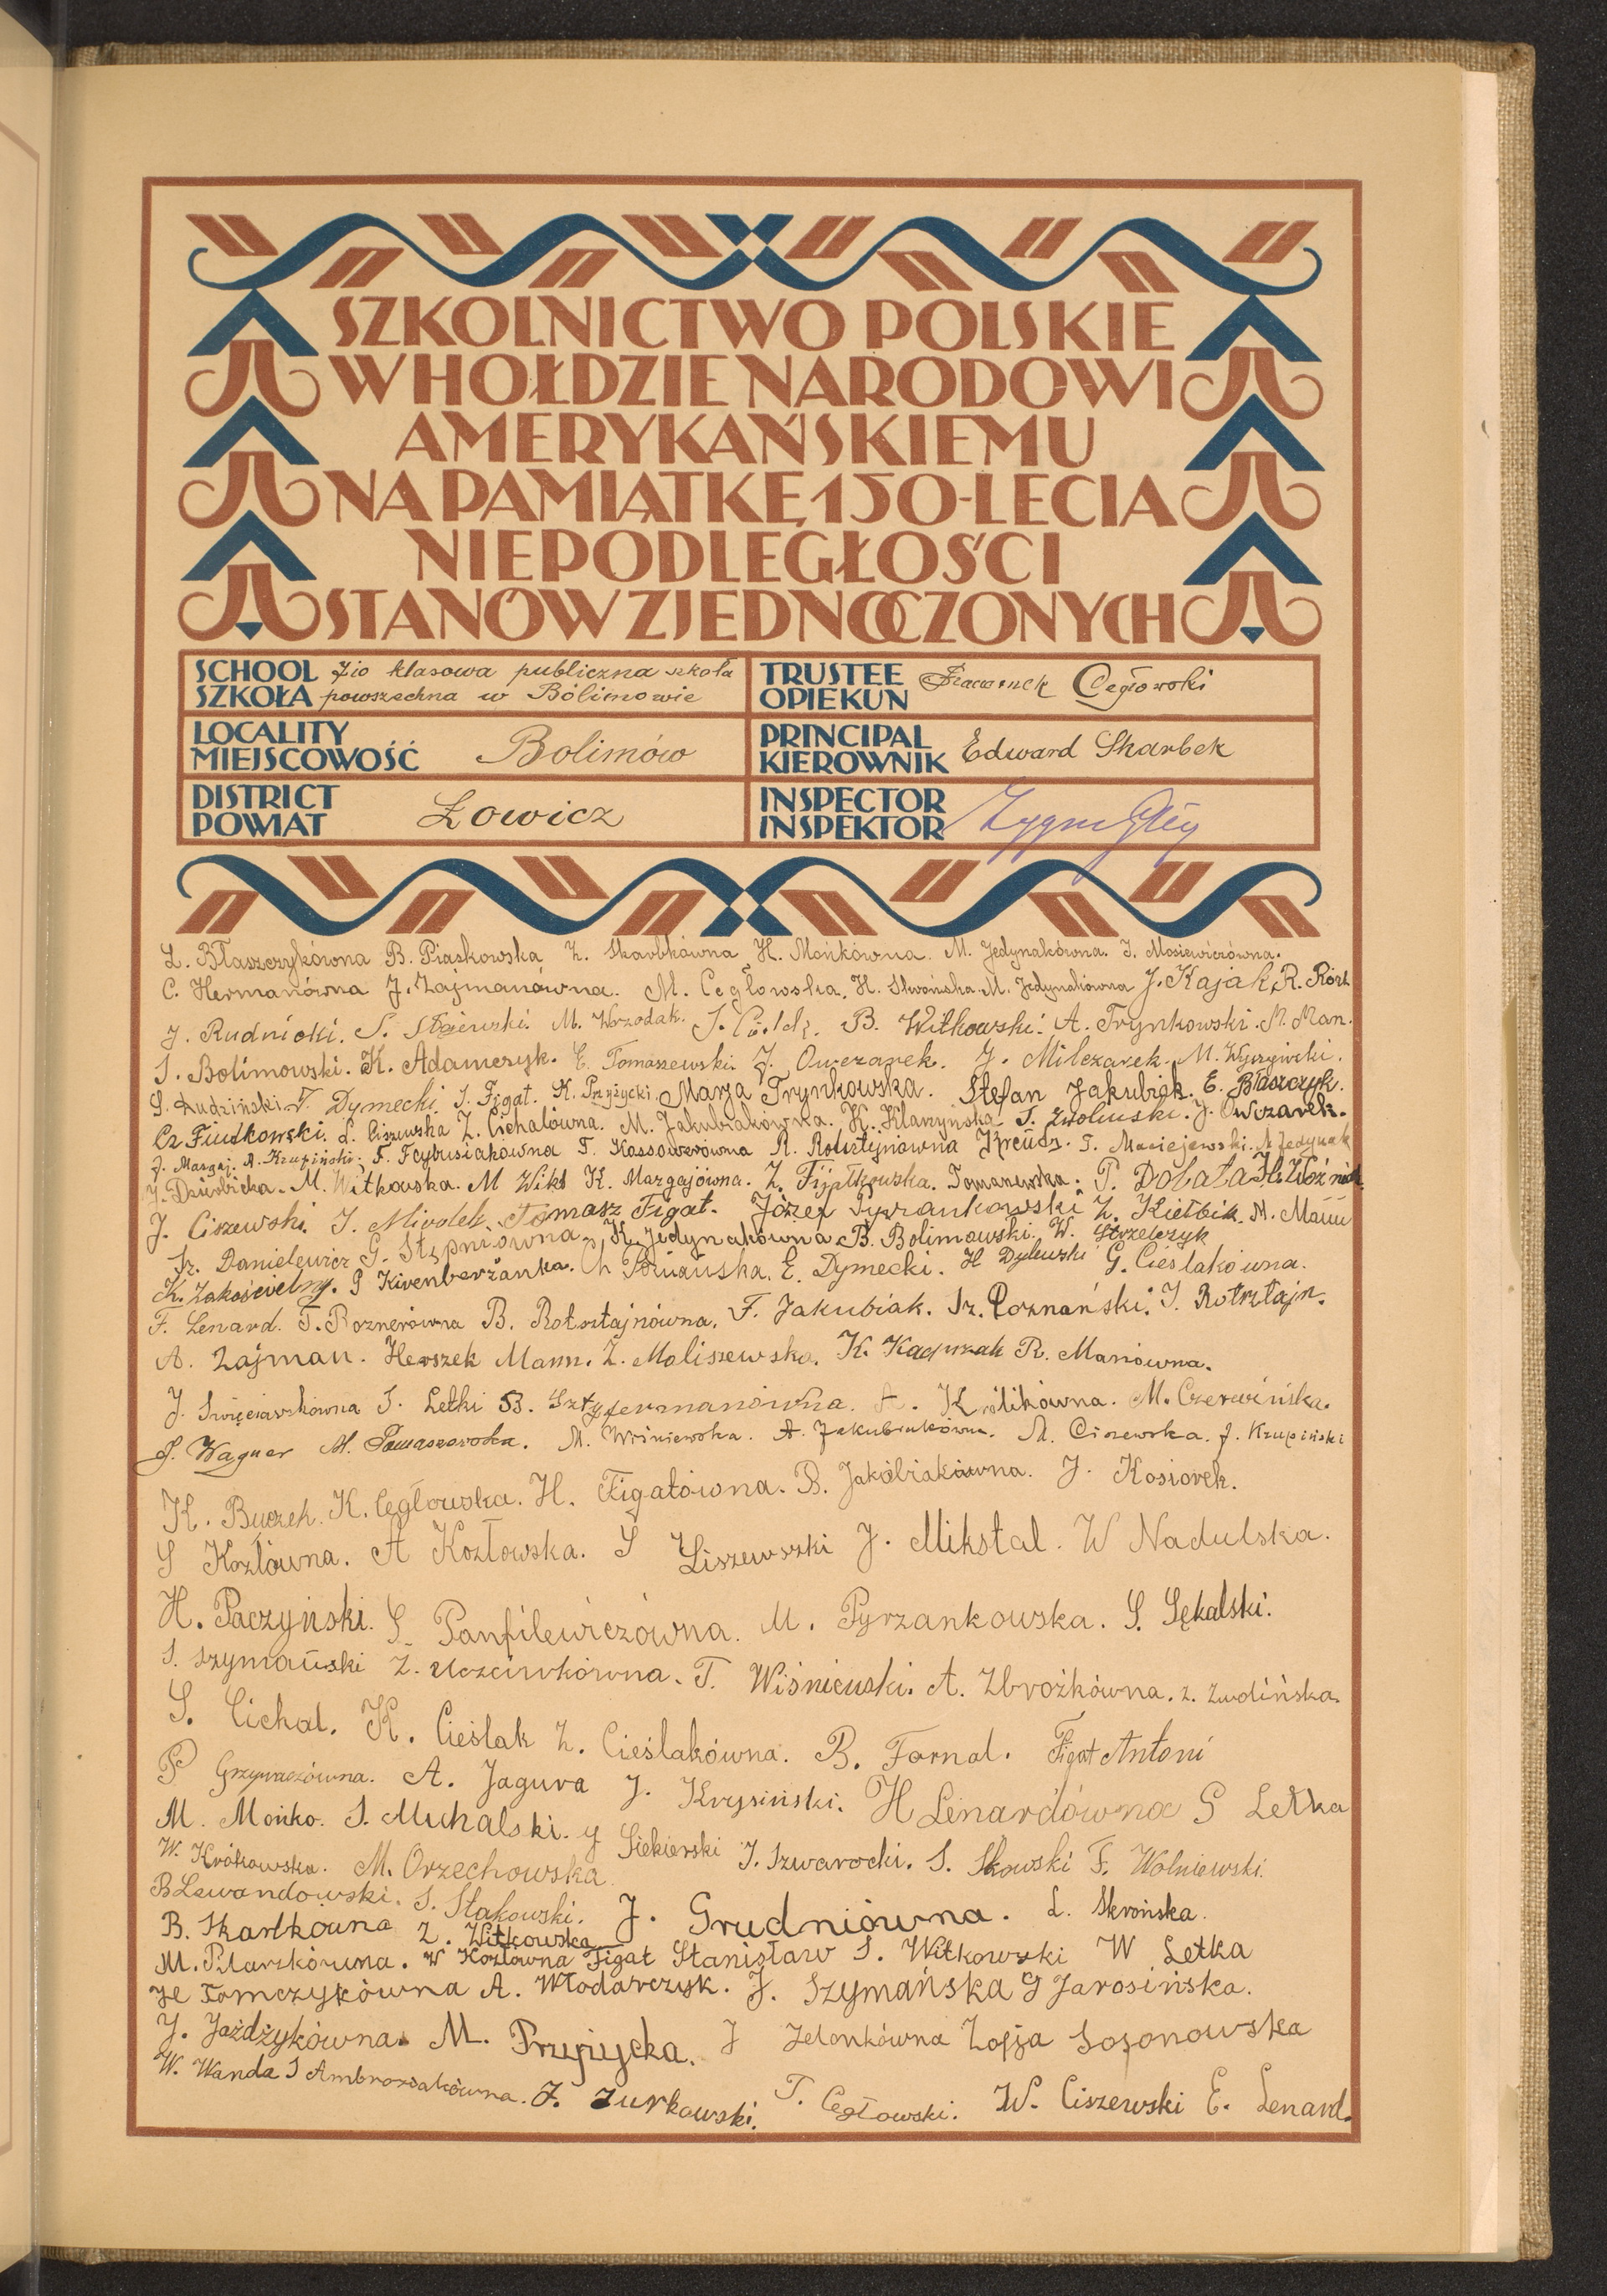 SZKOLNICTWO POLSKIE
W HOŁDZIE NARODOWI
AMERYKAŃSKIEMU
NA PAMIĄTKĘ 150-LECIA
NIEPODLEGŁOŚCI
STANÓW ZJEDNOCZONYCH
SCHOOL 7io klasowa publiczna szkoła
SZKOŁA powszechna w Bolimowie
TRUSTEE
OPIEKUN Cegłowski
LOCALITY
MIEJSCOWOŚĆ Bolimów
PRINCIPAL
KIEROWNIK Edward Skarbek
DISTRICT
POWIAT Łowicz
INSPECTOR
INSPEKTOR
L. Błaszczykówna B. Piaskowska Z. Skarbkówna H. Mońkówna. M. Jedynakówna. J. Mosiewiczówna.
C. Hermanówna J. Zajmanówna. M. Cegłowska. H. Skrońska. M. Jedynakówna J. Kajak. R.
J. Rudnicki. S. M. Wrzodak. B. Witkowski. A. Trynkowski. M. Man.
S. Bolimowski. K. Adamczyk. E. Tomaszewski. J. Owczarek. J. Milczarek. M.
S. Rudziński. T. Dymecki. S. Figat. K. Przyżycki. Marja Trynkowska. Stefan Jakubiak. E. Błaszczyk.
Cz. Fiutkowski. L. Ciszewska Z. Cichalówna. M. Jakubiakówna. K. Klarzyńska T. Zwoliński. J. Owczarek.
J. Margaj. A. Krupiński. F. Fajbusiakówna F. Kossowerówna R. Rotsztejnówna T. Maciejewski. A. Jedynak
J. Dziwobicka. M. Witkowska. M Wikł K. Margajówna. Z. Fijałkowska. Tomaszewska. P. Dobała H. Woźniak.
J. Ciszewski. J. Miodek. Tomasz Figat. Józef Pyrzankowski Z. Kiełbik. M. Mann
Fr. Danielewicz G. Stępniówna. K. Jedynakówna B. Bolimowski. W. Strzelczyk
K. Zakościelny. G Kirenberżanka. E. Dymecki. H Dylewski G. Cieślakówna.
F. Lenard. T. Roznerówna B. Rotsztajnówna. F. Jakubiak. Fr. Poznański. J. Rotsztajn.
A. Zajman. Herszek Mann. Z. Maliszewska. K. Kacprzak R. Manówna.
J. Święciaszkówna S. Letki B. Sztyfermanówna. A. Królikówna. M. Czerwińska.
S. Wagner M. Tomaszewska. M. Wiśniewska. A. Jakubiakówna. M. Ciszewska. J. Krupiński
K. Buczek. K. Cegłowska. H. Figatówna. B. Jakóbiakówna. J. Kosiorek.
S Kozłówna. A Kozłowska. S Liszewski J. Mikstal. W Nadulska.
H. Paczyński. S. Panfilewiczówna. M. Pyrzankowska. S. Sękalski.
S. Szymański Z. Uczciwkówna. T. Wiśniewski. A. Zbrożkówna. Z. Zwolińska.
S. Cichal. K. Cieślak Z. Cieślakówna. B. Fornal. Figat Antoni
P Grzywaczówna. A. Jagura J. Krysiński. H Lenardówna G Letka
M. Mońko. S. Michalski. J Siekierski J. Szwarocki. S. Skowski F. Wolniewski.
W. Królowska. M. Orzechowska.
B Lewandowski. S. Stakowski. J. Grudniówna. L. Skrońska.
B. Skarbkówna Z. Witkowska
M. Pilarzkówna. W Kozłówna Figat Stanisław S. Witkowski W Letka
H Tomczykówna A. Włodarczyk. J. Szymańska G Jarosińska.
J. Jażdżykówna. M. Przyżycka. J Zelonkówna Zofja Sosonowska
W. Wanda S Ambroziakówna. J. Żurkowski. T. Cegłowski. W. Ciszewski E. Lenard.